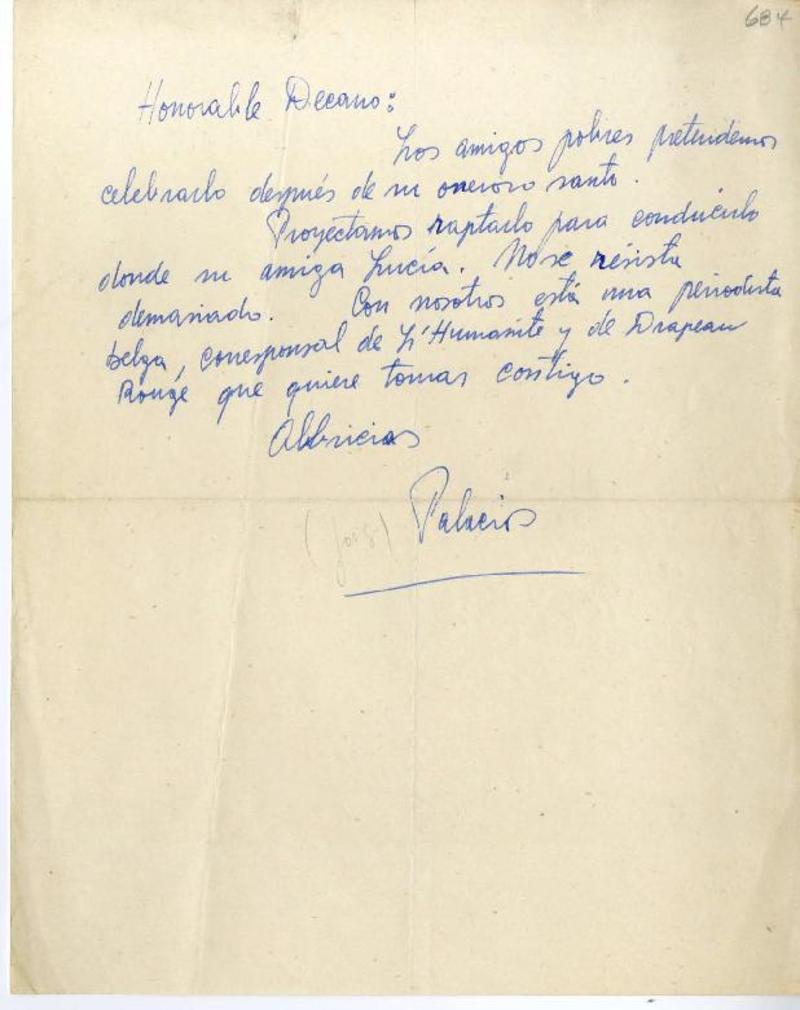 684
Honorable Decano:
Los amigos pobres pretendemos
celebrarlo después de su oneroso santo.
Proyectamos raptarlo para conducirlo
donde su amiga Lucía. No se resista
demasiado. Con nosotros está una periodista
belga, corresponsal de L'Humanite y de Drapeau
Rouge que quiere tomar contigo.
Albricias
(Jorge) Palacios